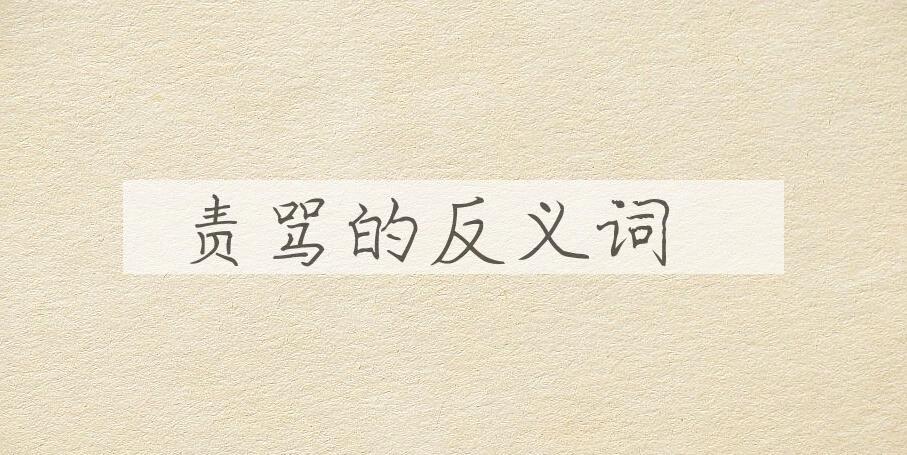 责骂的反义词